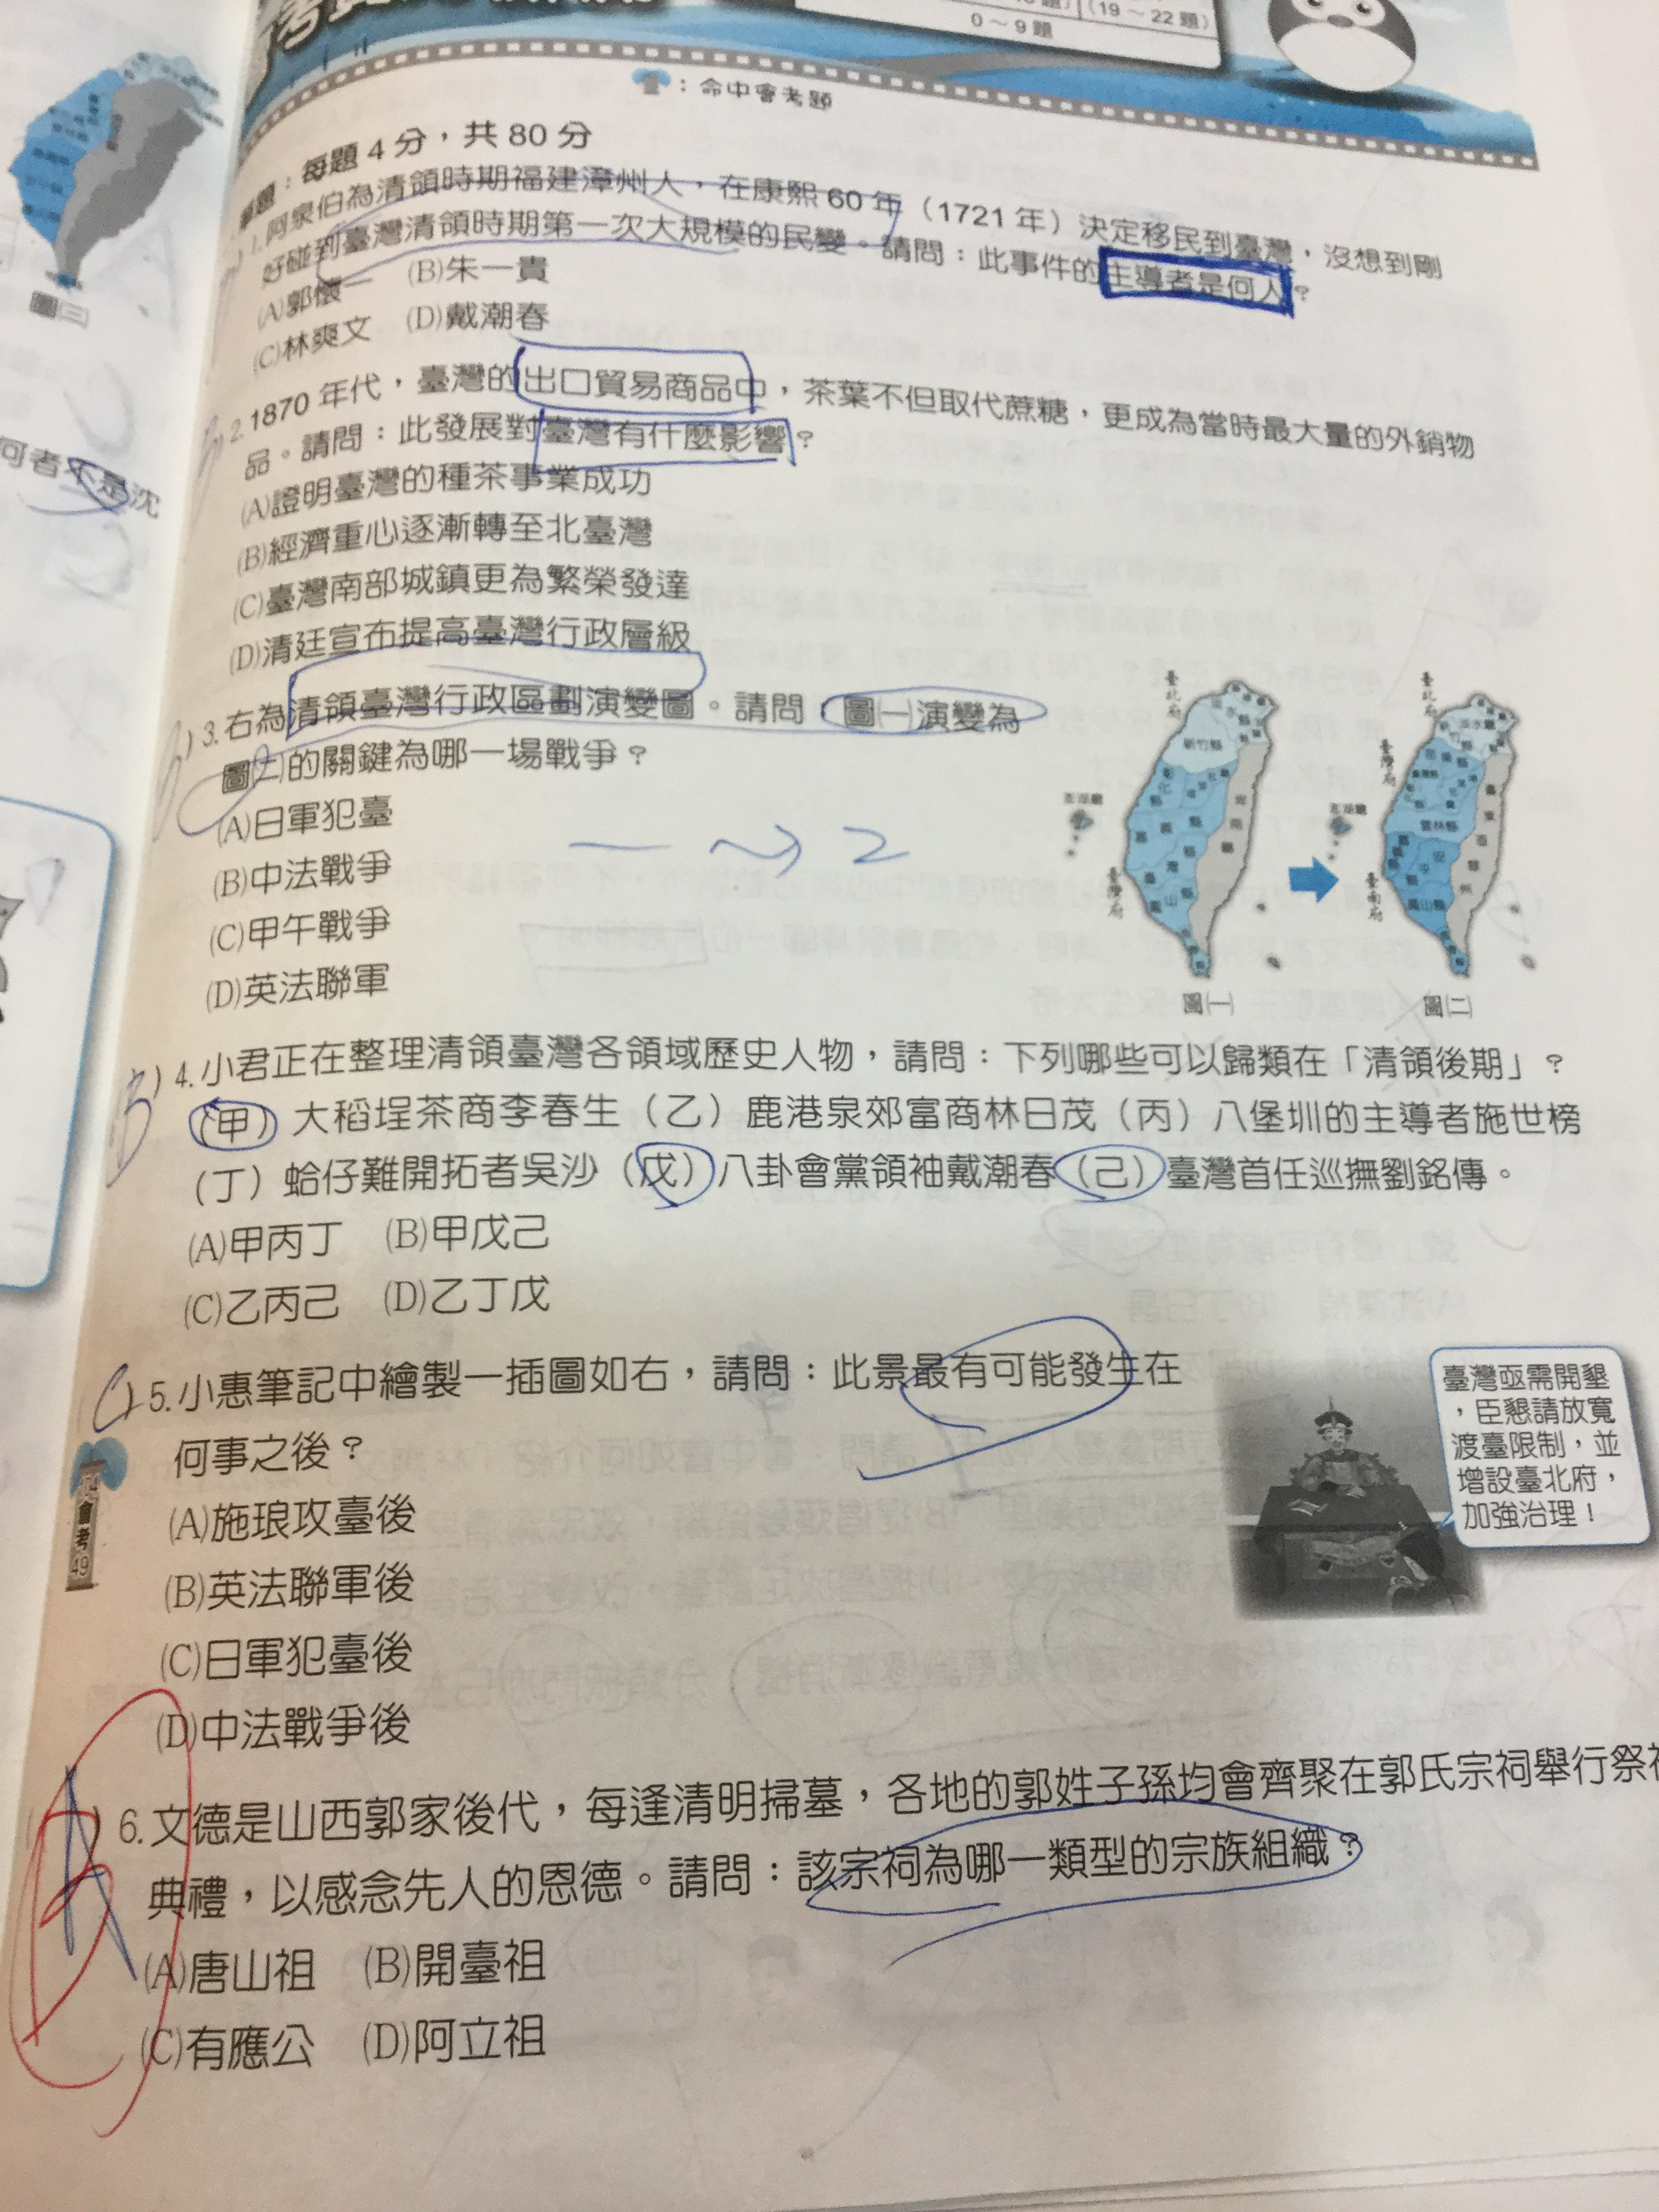 (19～22題)
0～9題
：命中會考題
題：每題4分，共80分
1.阿泉伯為清領時期福建漳州人，在康熙60年（1721年）決定移民到臺灣，沒想到剛
好碰到臺灣清領時期第一次大規模的民變。請問：此事件的主導者是何人？
(A)郭懷一 (B)朱一貴
(C)林爽文 (D)戴潮春
2.1870年代，臺灣的出口貿易商品中，茶葉不但取代蔗糖，更成為當時最大量的外銷物
品。請問：此發展對臺灣有什麼影響？
(A)證明臺灣的種茶事業成功
(B)經濟重心逐漸轉至北臺灣
(C)臺灣南部城鎮更為繁榮發達
(D)清廷宣布提高臺灣行政層級
B)3.右為清領臺灣行政區劃演變圖。請問：圖㈠演變為
圖㈡的關鍵為哪一場戰爭？
(A)日軍犯臺
(B)中法戰爭
(C)甲午戰爭
(D)英法聯軍
一→2
臺北府
新竹縣
澎湖廳
臺灣府
圖㈠
臺北府
淡水縣
臺灣府
澎湖廳
雲林縣
臺東直隸州
臺南府
鳳山縣
圖㈡
B)4.小君正在整理清領臺灣各領域歷史人物，請問：下列哪些可以歸類在「清領後期」？
（甲）大稻埕茶商李春生（乙）鹿港泉郊富商林日茂（丙）八堡圳的主導者施世榜
（丁）蛤仔難開拓者吳沙（戊）八卦會黨領袖戴潮春（己）臺灣首任巡撫劉銘傳。
(A)甲丙丁 (B)甲戊己
(C)乙丙己 (D)乙丁戊
C)5.小惠筆記中繪製一插圖如右，請問：此景最有可能發生在
何事之後？
(A)施琅攻臺後
(B)英法聯軍後
(C)日軍犯臺後
(D)中法戰爭後
臺灣亟需開墾
，臣懇請放寬
渡臺限制，並
增設臺北府，
加強治理！
會考
49
6.文德是山西郭家後代，每逢清明掃墓，各地的郭姓子孫均會齊聚在郭氏宗祠舉行祭
典禮，以感念先人的恩德。請問：該宗祠為哪一類型的宗族組織？
(A)唐山祖 (B)開臺祖
(C)有應公 (D)阿立祖
圖三
何者不是沈